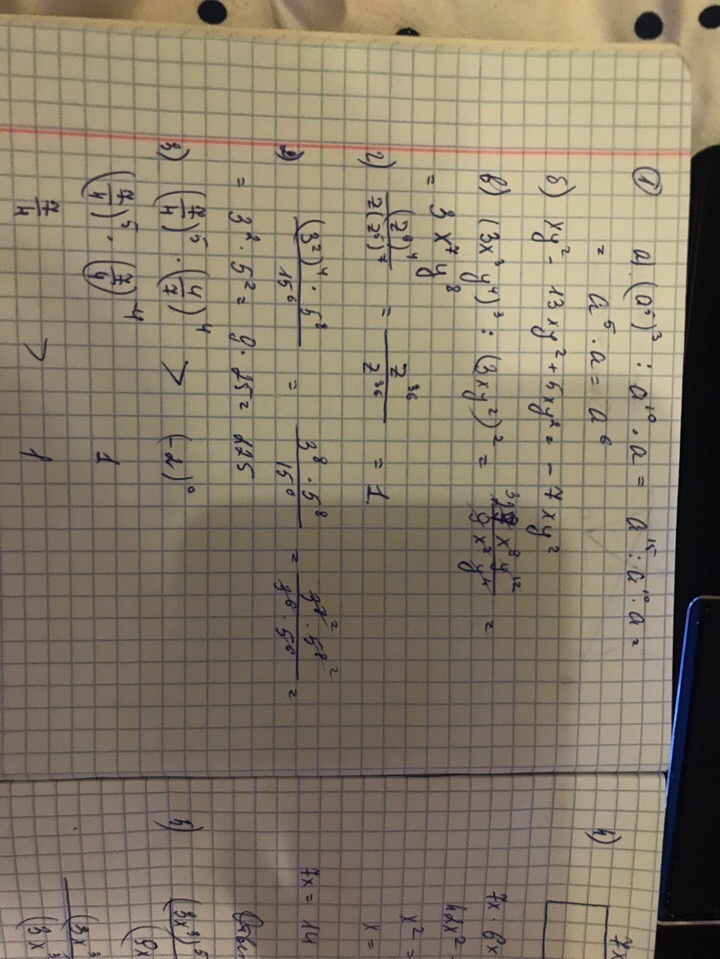 ① a) (a⁵)³ : a¹⁰ · a = a¹⁵ : a¹⁰ · a =
= a⁵ · a = a⁶
б) xy² - 13xy² + 5xy² = - 7xy²
в) (3x³y⁴)³ : (3xy²)² = x⁹y¹² / 9x²y⁴ =
= 3x⁷y⁸
г) (z⁹)⁴ / z(z⁵)⁷ = z³⁶ / z³⁶ = 1.
(3²)⁴ · 5⁸ / 15⁶ = 3⁸ · 5⁸ / 15⁶ = 3⁸ ² · 5⁸ ² / 3⁶ · 5⁶ =
= 3² · 5² = 9 · 25 = 225
3) (7/4)⁵ · (4/7)⁴ > (-2)⁰
(7/4)⁵ · (7/4)⁻⁴ 1
7/4 > 1
4)
7x
7x · 6x
42x²
x² =
x =
7x = 14
5) (3x³)⁵
(9x
(3x³
(3x